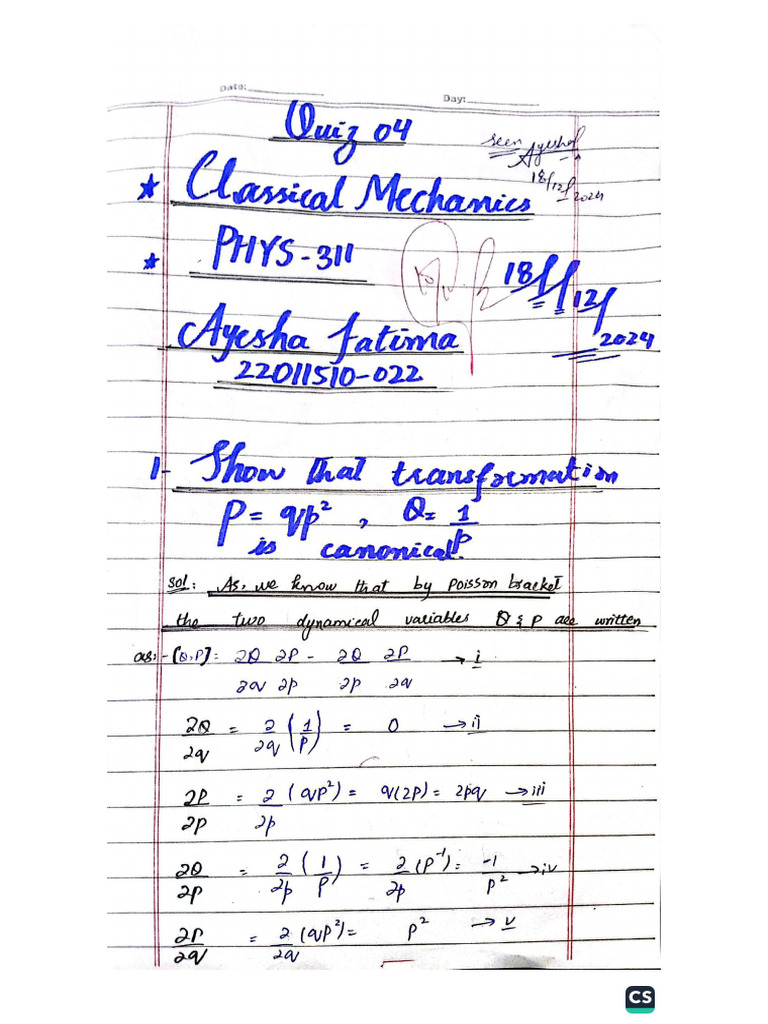 Date: Day:
Quiz 04
seen Ayesha
18/12/2024
* Classical Mechanics
* PHYS-311
18/12/2024
Ayesha Fatima
22011510-022
1- Show that transformation
P = qp² , Q = 1/p
is canonical.
Sol: As, we know that by Poisson bracket
the two dynamical variables Q & P are written
as:- [Q,P]: ∂Q/∂q ∂P/∂p - ∂Q/∂p ∂P/∂q → i
∂Q/∂q = ∂/∂q (1/p) = 0 → ii
∂P/∂p = ∂/∂p (qp²) = q(2p) = 2pq → iii
∂Q/∂p = ∂/∂p (1/p) = ∂/∂p (p⁻¹) = -1/p² → iv
∂P/∂q = ∂/∂q (qp²) = p² → v
CS